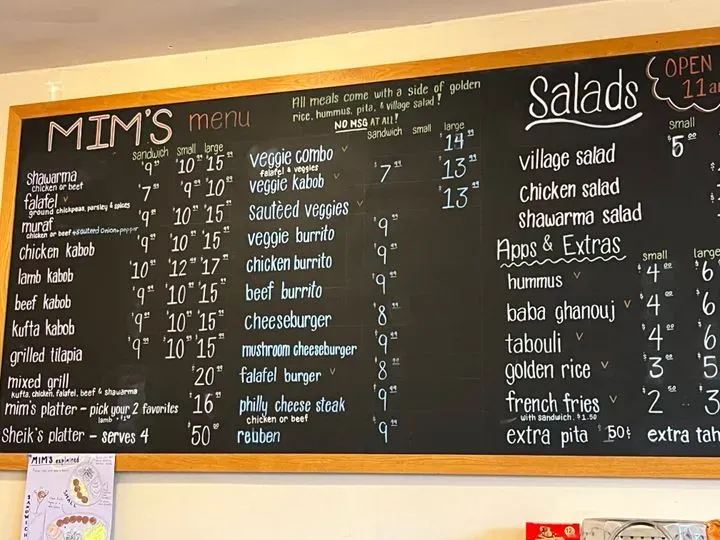 MIM'S menu
All meals come with a side of golden
rice, hummus, pita, & village salad!
NO MSG AT ALL!
sandwich small large
shawarma $9.99 $10.99 $15.99
chicken or beef
falafel ✓ $7.99 $9.99 $10.99
ground chickpeas, parsley & spices
muraf $9.99 $10.99 $15.99
chicken or beef + sauteed onion + pepper
chicken kabob $9.99 $10.99 $15.99
lamb kabob $10.99 $12.99 $17.99
beef kabob $9.99 $10.99 $15.99
kufta kabob $9.99 $10.99 $15.99
grilled tilapia $9.99 $10.99 $15.99
mixed grill $20.99
kufta, chicken, falafel, beef & shawarma
mim's platter - pick your 2 favorites $16.99
Sheik's platter - serves 4 $50.00
sandwich small large
veggie combo ✓ $14.99
falafel & veggies
veggie kabob ✓ $7.99 $13.99
sautèed veggies ✓ $13.99
veggie burrito $9.99
chicken burrito $9.99
beef burrito $9.99
cheeseburger $8.99
mushroom cheeseburger $9.99
falafel burger ✓ $8.99
philly cheese steak $9.99
chicken or beef
reuben $9.99
Salads
OPEN
11a
small
village salad $5.00
chicken salad
shawarma salad
Apps & Extras
small large
hummus ✓ $4.00 $6
baba ghanouj ✓ $4.00 $6
tabouli ✓ $4.00 $6
golden rice ✓ $3.00 $5
french fries ✓ $2.00 $3
with sandwich $1.50
extra pita 50¢ extra tah
MIM'S explained
SMALL
SANDWICH